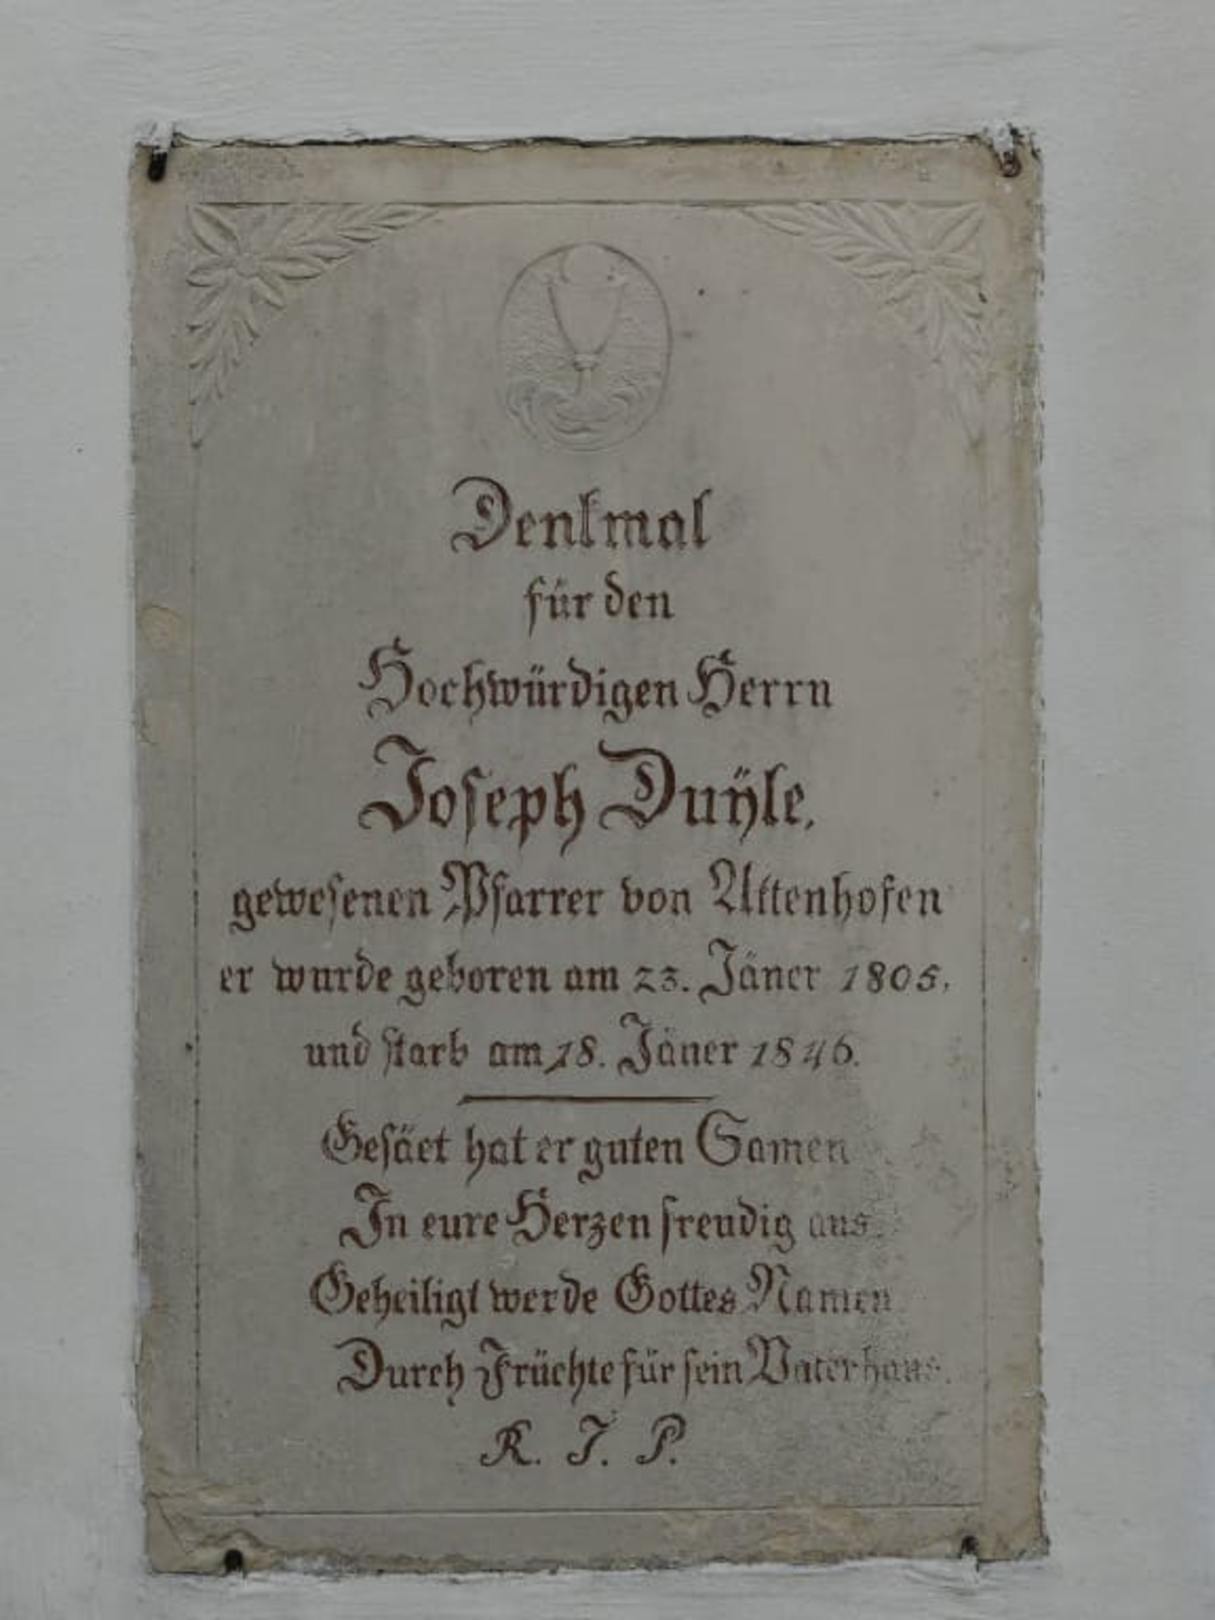 Denkmal
für den
Hochwürdigen Herrn
Joseph Duÿle,
gewesenen Pfarrer von Attenhofen
er wurde geboren am 23. Jäner 1805,
und starb am 18. Jäner 1846.
Gesäet hat er guten Samen
In eure Herzen freudig aus.
Geheiligt werde Gottes Namen
Durch Früchte für sein Vaterhaus.
R. I. P.